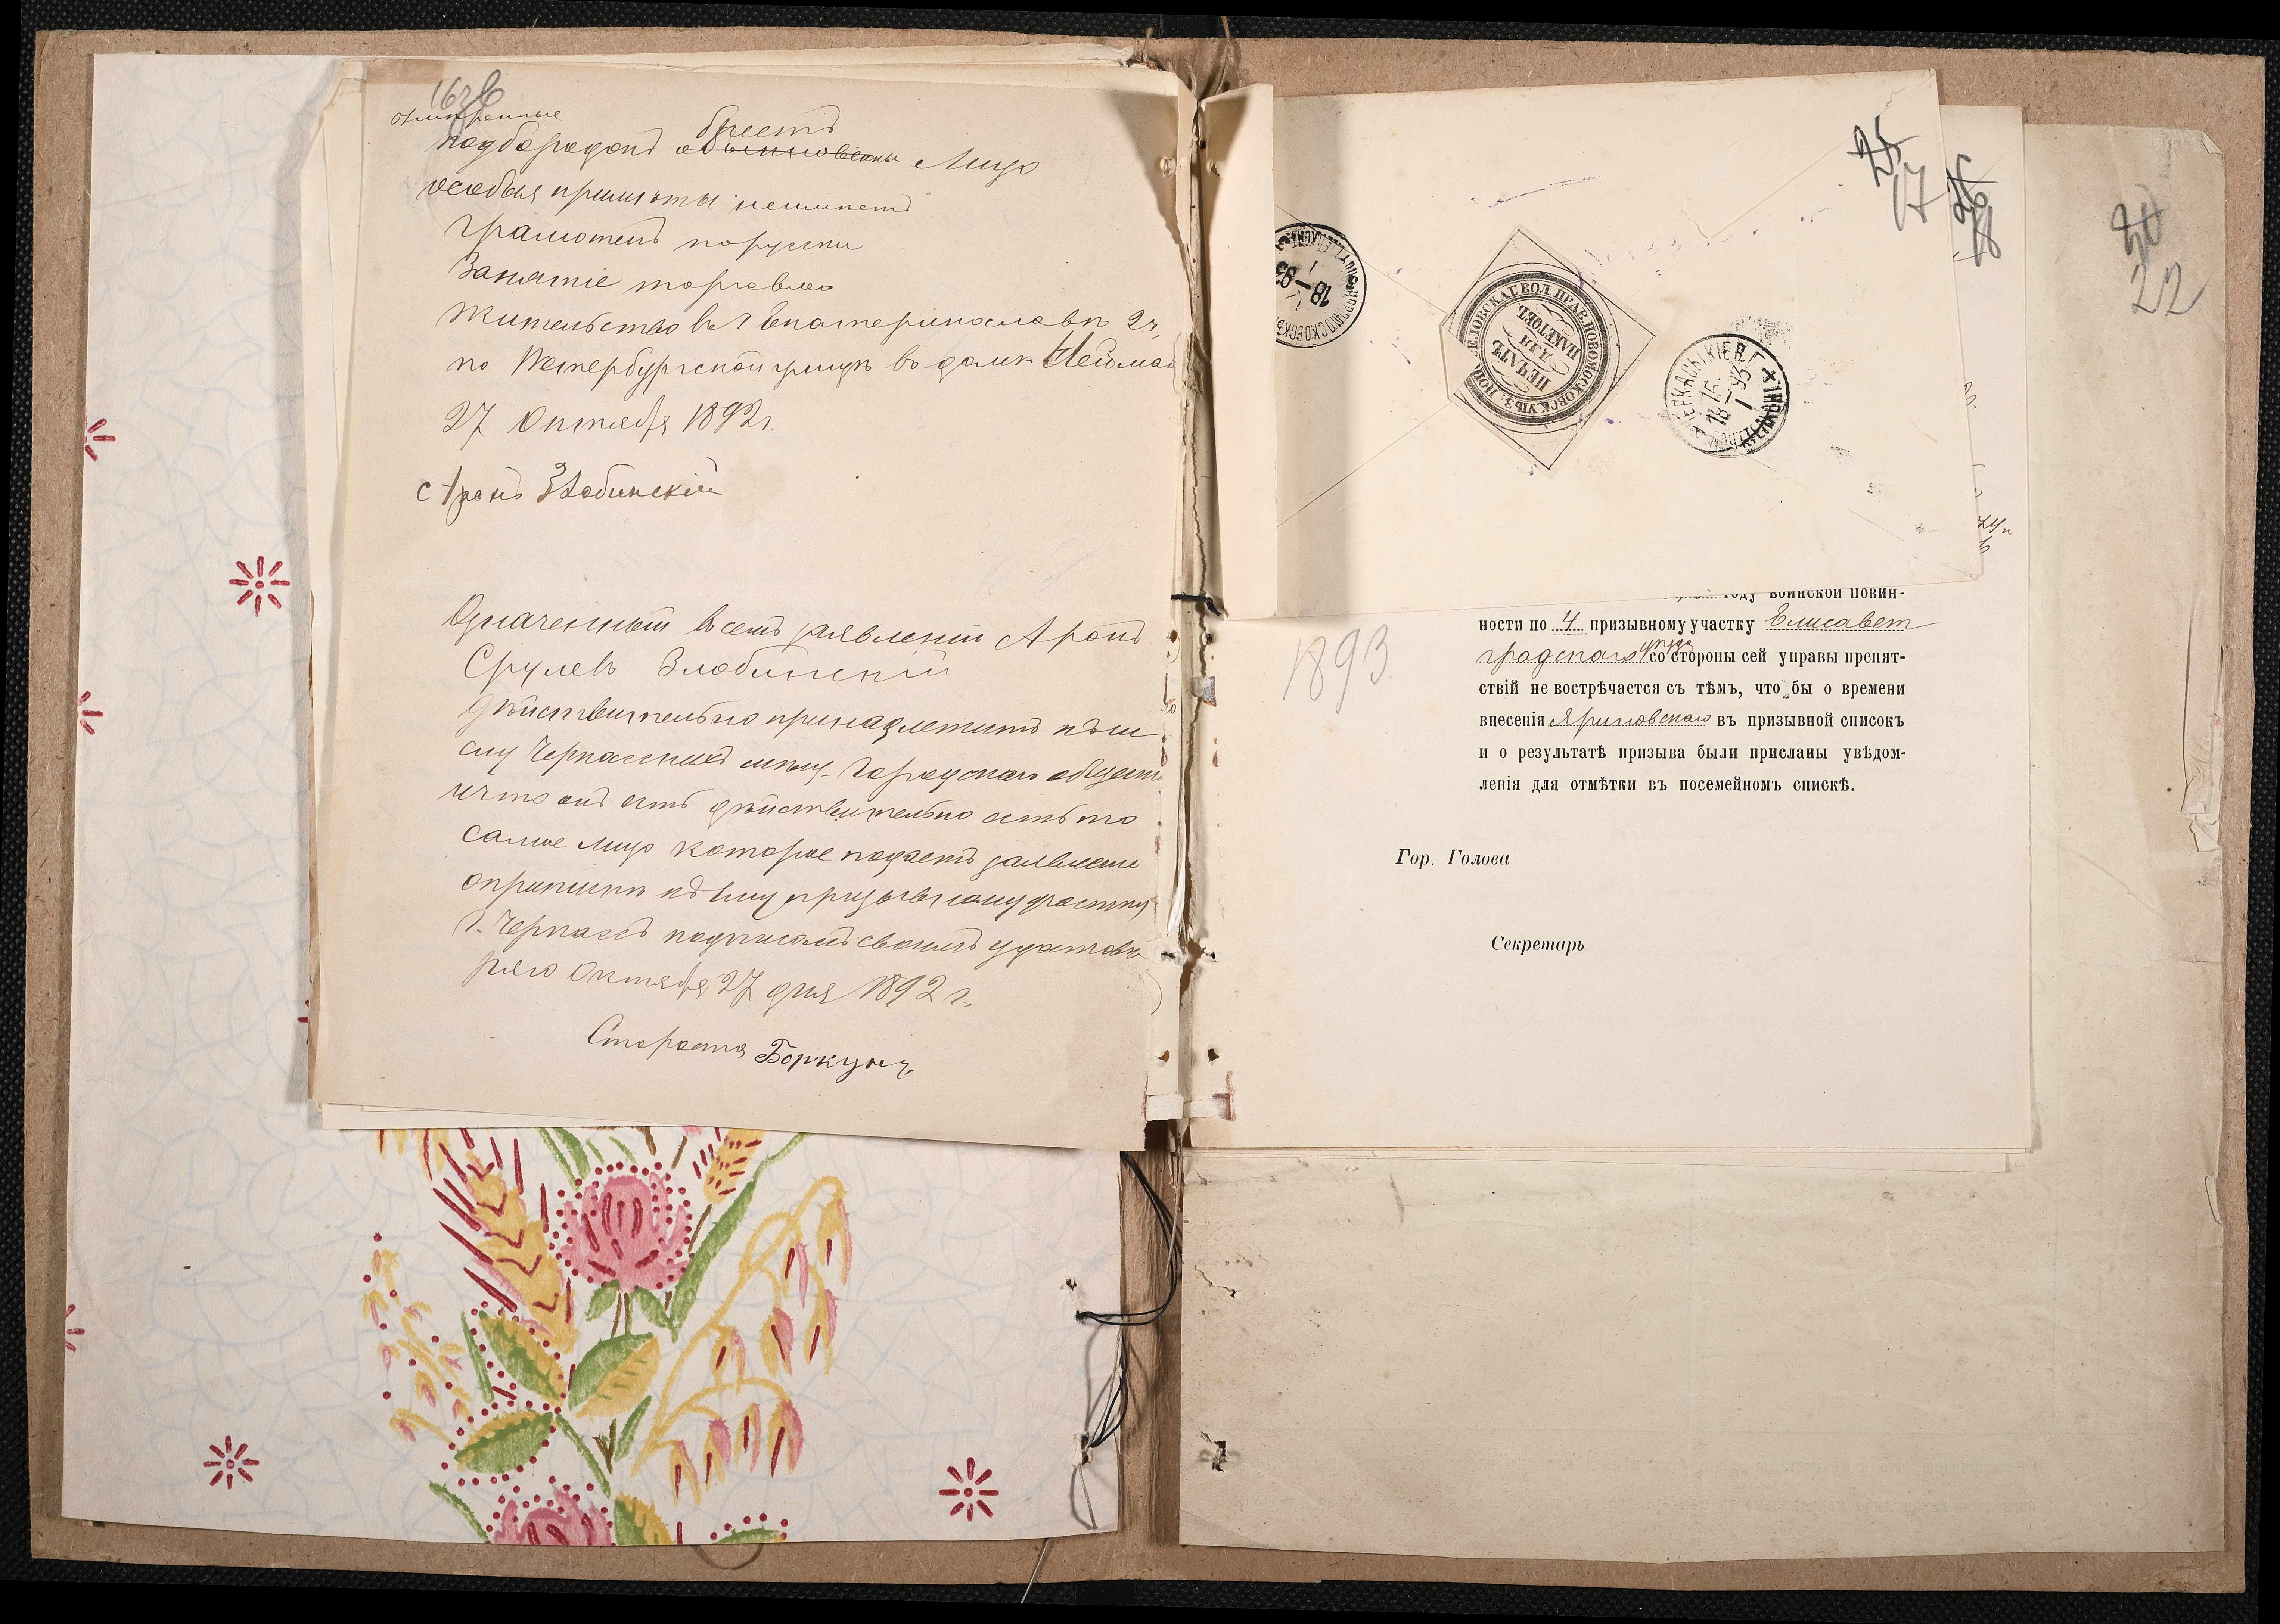 16 об
подбородокъ бреетъ обыкновенны Лицо
особыя примѣты неимеетъ
Грамотенъ порусски
Занятіе торговля
Жительство въ г Екатеринославѣ 2ч.
по Петербургской улицѣ въ домѣ Нейман
27 Октября 1892 г.
Аронъ Злобинскій
Означенный въ семъ заявленіи Аронъ
Срулевъ Злобинскій
дѣйствительно принадлежитъ къ
сму Черкасскихъ мѣщ. Городскаго общест
и что онъ есть дѣйствительно есть то
самое лицо которое подаетъ заявленіе
о припискѣ къ призывному участку
г. Черкассъ подписомъ своимъ удостовѣ
ряю Октября 27 дня 1892 г.
Староста Боркунъ
25
17
26
18
30
22
18-93
НОВОМОСКОВСКЪ
ВОЛ. ПРАВ. НОВОМОСКОВСК. УѢЗ.
ПЕЧАТЬ
ДЛЯ
ПАКЕТОВЪ
ЧЕРКАСЫ КІЕВ. Г.
15
18-93
1
1893
году воинской повин-
ности по 4 призывному участку Елисавет
градскаго уѣзда со стороны сей управы препят-
ствій не востр­ѣчается съ тѣмъ, что бы о времени
внесенія Яриновскаго въ призывной списокъ
и о результатѣ призыва были присланы увѣдом-
ленія для отмѣтки въ посемейномъ спискѣ.
Гор. Голова
Секретарь